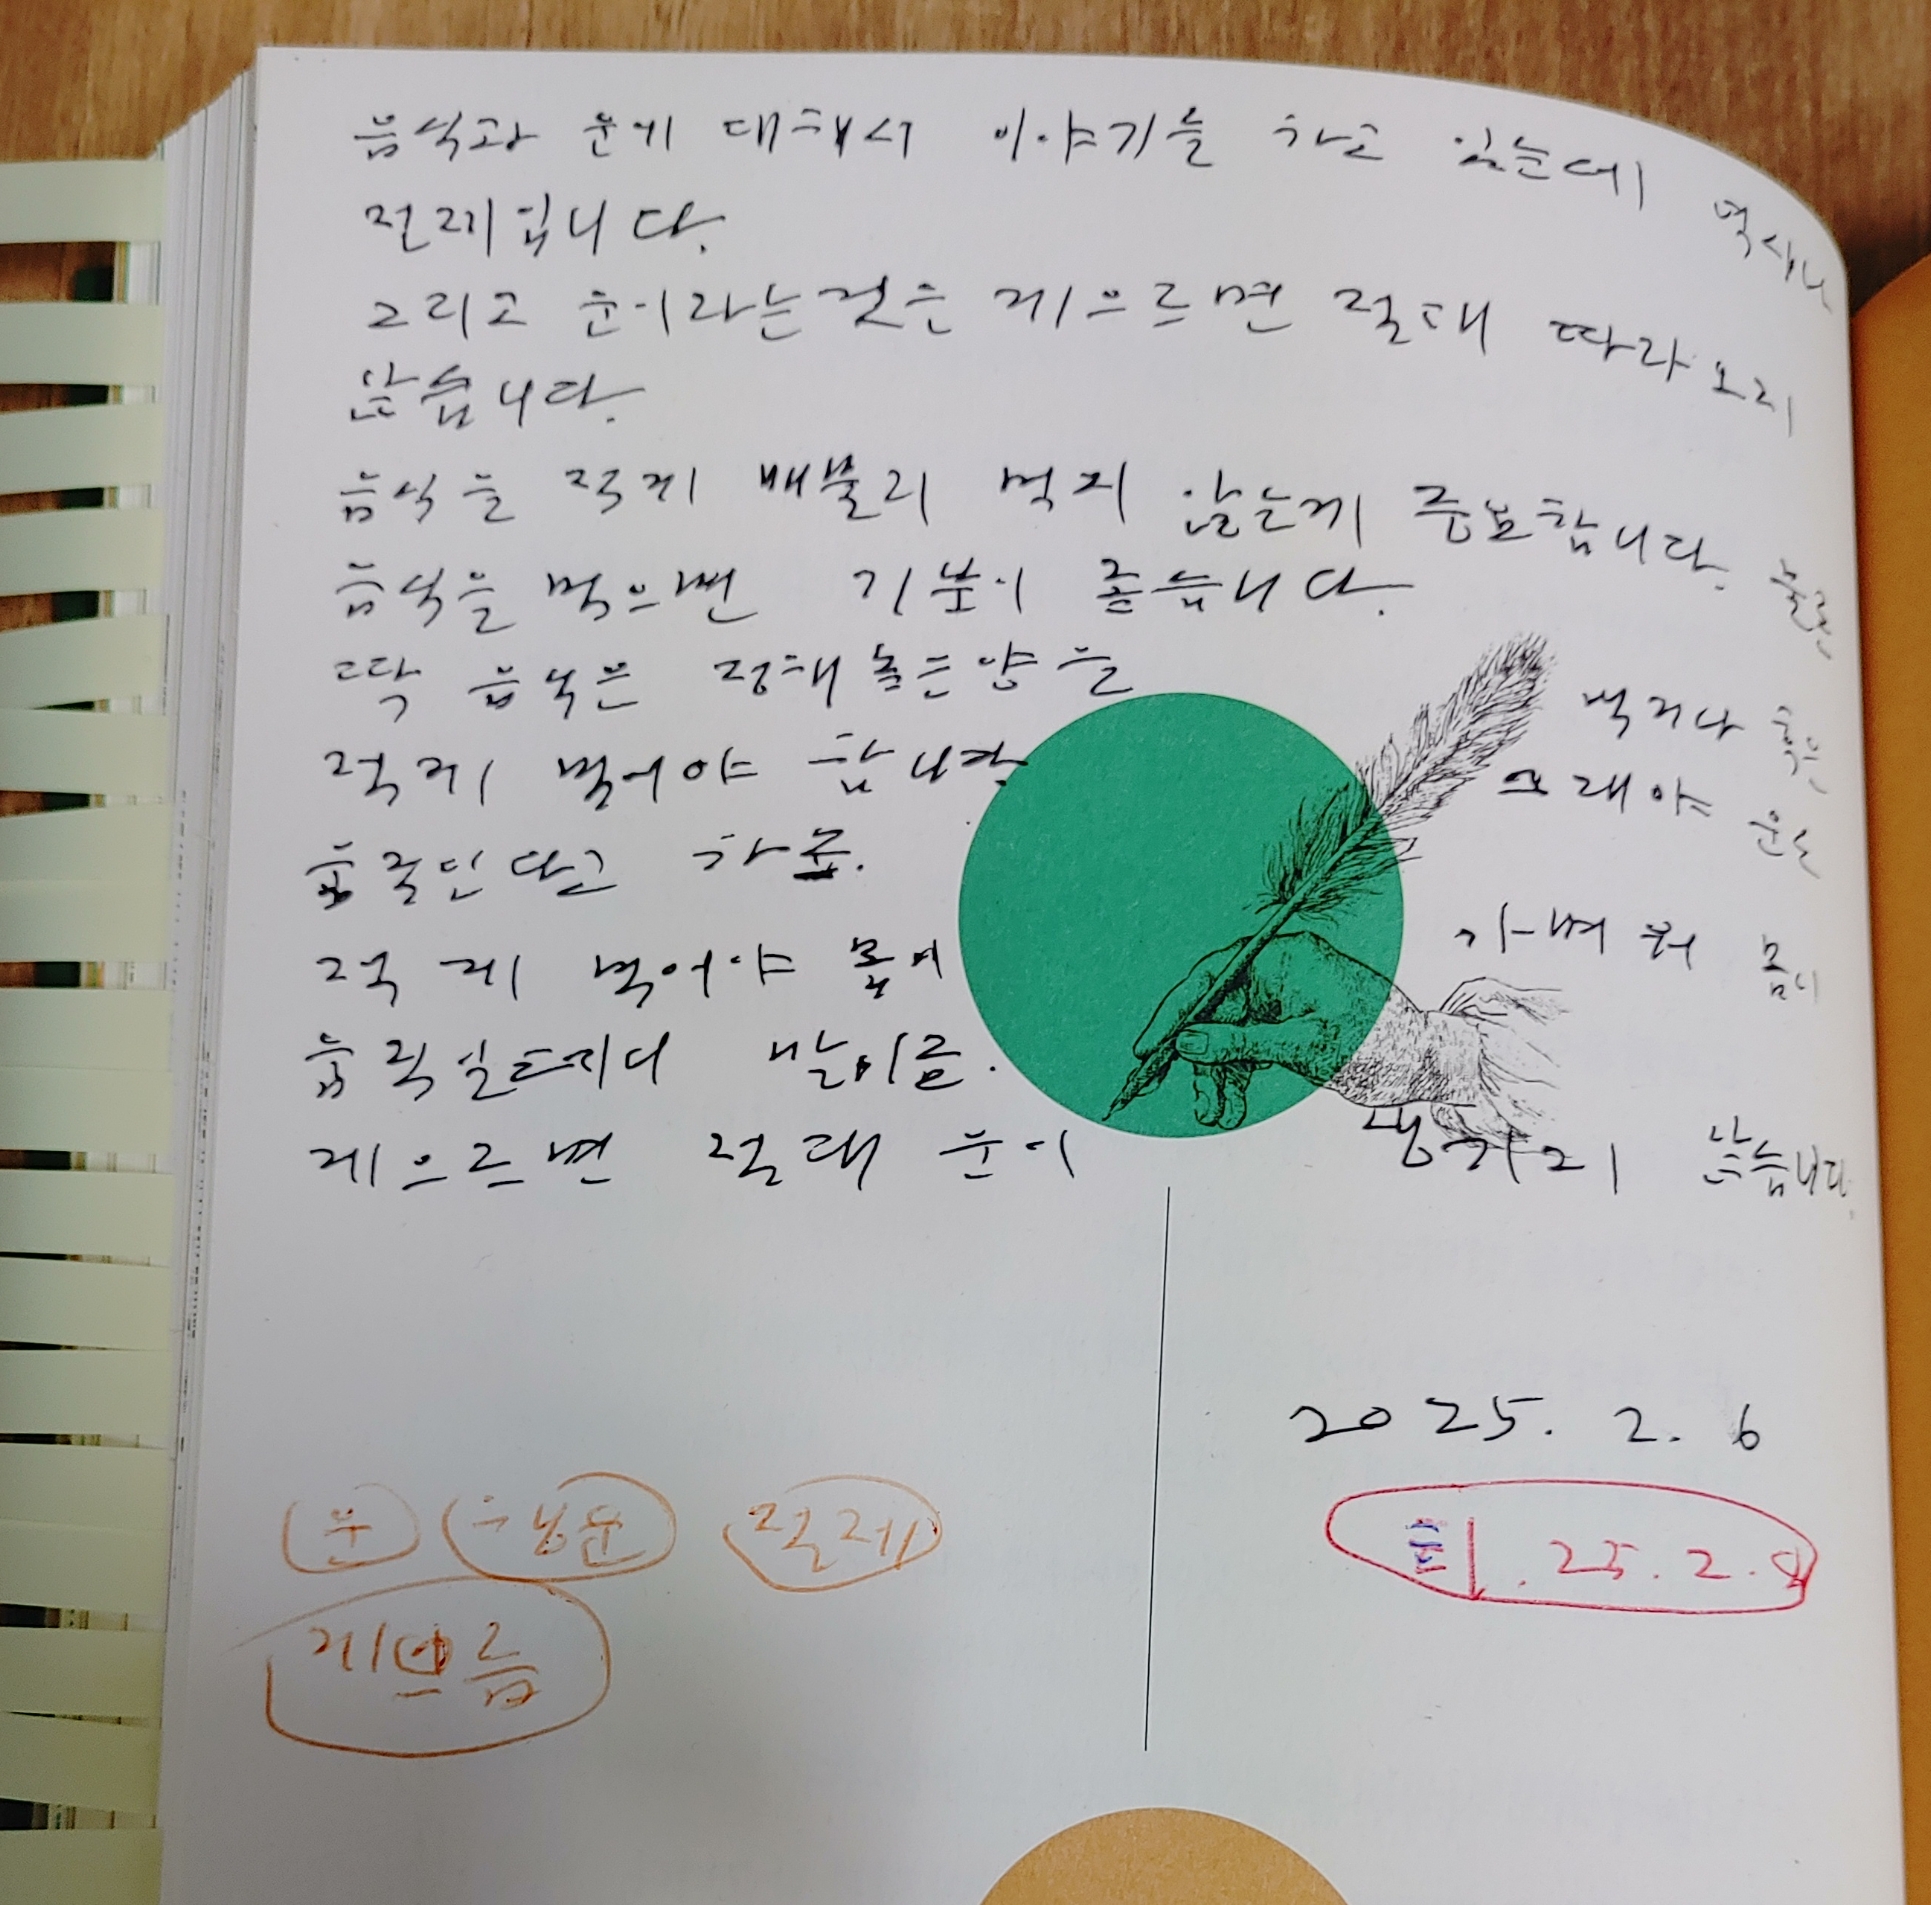 음식과 운에 대해서 이야기를 하고 있는데 역시나
절제입니다.
그리고 운이라는것은 게으르면 절대 따라오지
않습니다.
음식을 적게 배불리 먹지 않는게 중요합니다. 물론
음식을 먹으면 기분이 좋습니다.
딱 음식은 정해 놓은양을 먹거나
적게 먹어야 합니다 그래야 운도
움직인다고 하죠.
적게 먹어야 몸이 가벼워 몸이
움직일테지 말이죠.
게으르면 절대 운이 생기지 않습니다.
2025. 2. 6
운 행운 절제
게으름
25. 2.